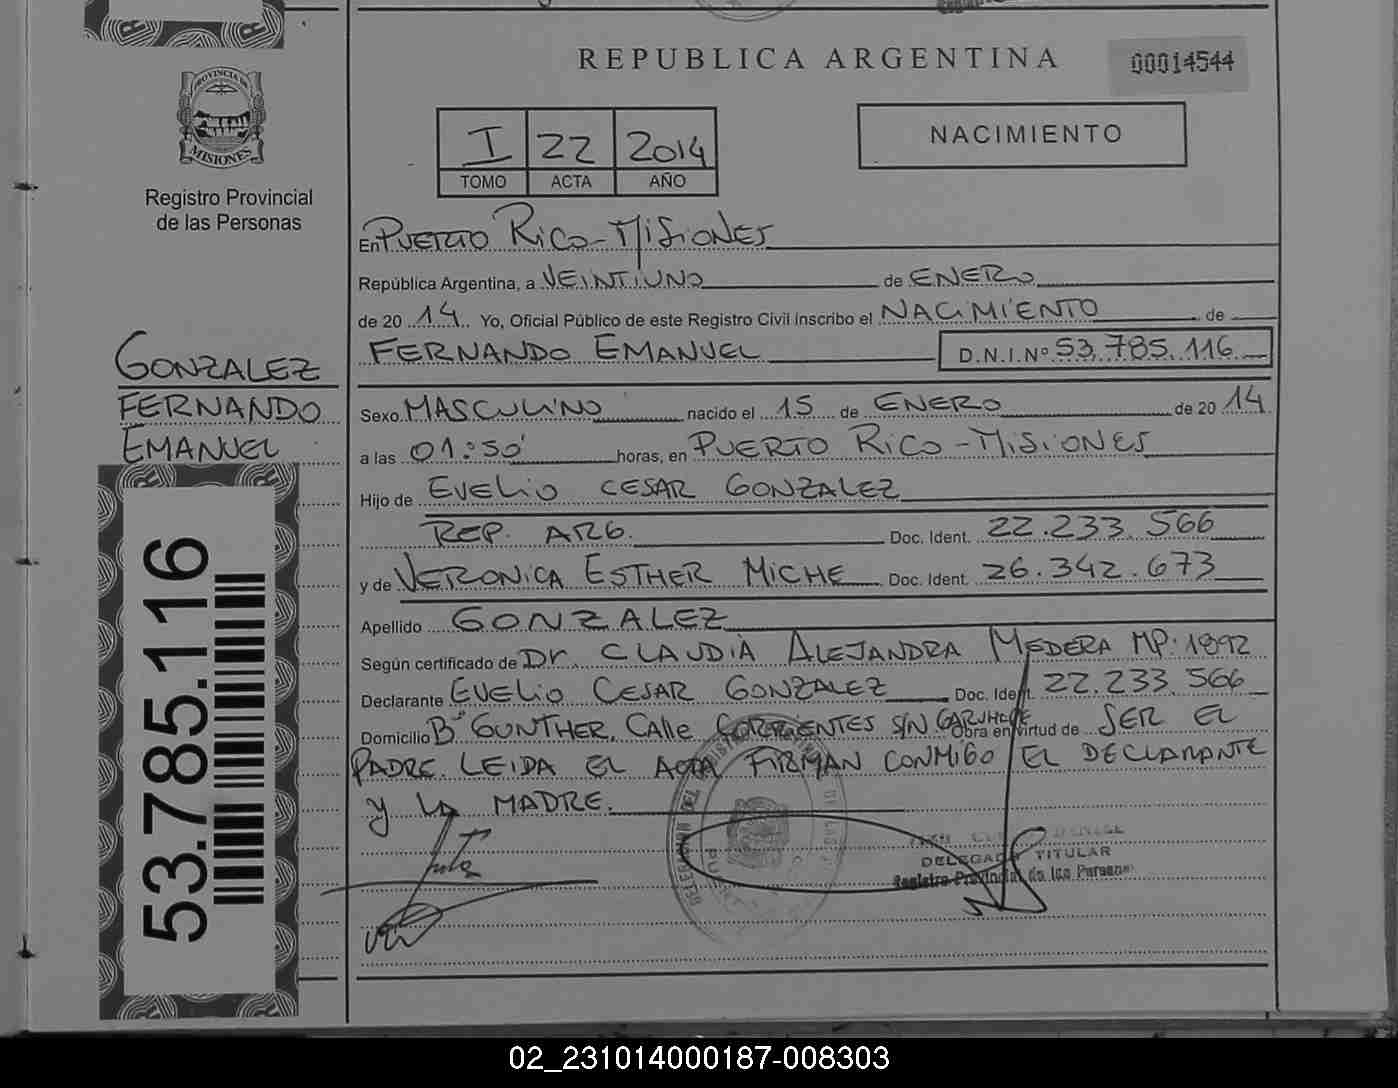 REPUBLICA ARGENTINA
00014544
PROVINCIA DE
MISIONES
Registro Provincial
de las Personas
I 22 2014
TOMO ACTA AÑO
NACIMIENTO
En PUERTO RICO-MISIONES
República Argentina, a VEINTIUNO de ENERO
de 20 14 Yo, Oficial Público de este Registro Civil inscribo el NACIMIENTO de
FERNANDO EMANUEL D.N.I.Nº 53.785.116
GONZALEZ
FERNANDO
EMANUEL
Sexo MASCULINO nacido el 15 de ENERO de 20 14
a las 01:50 horas, en PUERTO RICO-MISIONES
Hijo de EVELIO CESAR GONZALEZ
REP. ARG. Doc. Ident. 22.233.566
y de VERONICA ESTHER MICHE Doc. Ident. 26.342.673
Apellido GONZALEZ
Según certificado de Dr. CLAUDIA ALEJANDRA MEDERA MP: 1892
Declarante EVELIO CESAR GONZALEZ Doc. Ident. 22.233.566
Domicilio Bº GUNTHER, Calle CORRIENTES S/N GARUHAPE Obra en virtud de SER EL
PADRE. LEIDA EL ACTA FIRMAN CONMIGO EL DECLARANTE
y LA MADRE.
53.785.116
DELEGADO TITULAR
Registro Provincial de las Personas
02_231014000187-008303